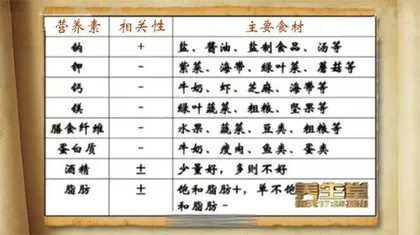 营养素 相关性 主要食材
钠 + 盐、酱油、盐制食品、汤等
钾 - 紫菜、海带、绿叶菜、蘑菇等
钙 - 牛奶、虾、芝麻、海带等
镁 - 绿叶蔬菜、粗粮、坚果等
膳食纤维 - 水果、蔬菜、豆类、粗粮等
蛋白质 - 牛奶、瘦肉、鱼类、蛋类
酒精 ± 少量好，多则不好
脂肪 ± 饱和脂肪+，单不饱
和脂肪-
养生堂